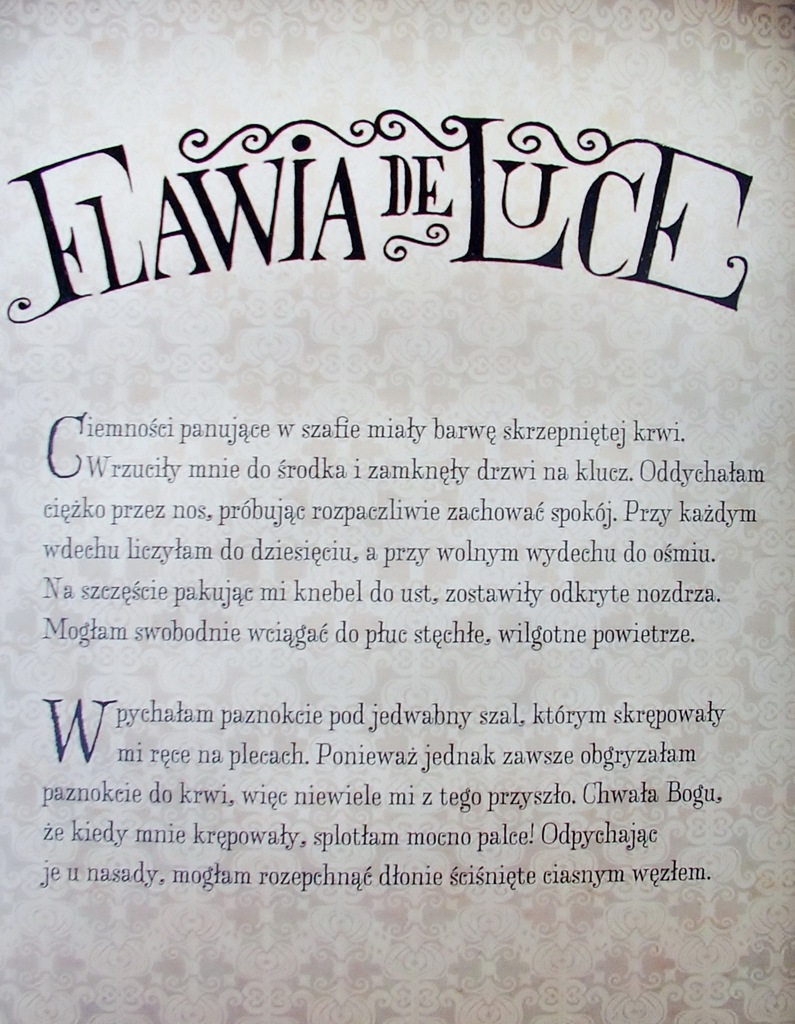 FLAWIA DE LUCE
Ciemności panujące w szafie miały barwę skrzepniętej krwi.
Wrzuciły mnie do środka i zamknęły drzwi na klucz. Oddychałam
ciężko przez nos, próbując rozpaczliwie zachować spokój. Przy każdym
wdechu liczyłam do dziesięciu, a przy wolnym wydechu do ośmiu.
Na szczęście pakując mi knebel do ust, zostawiły odkryte nozdrza.
Mogłam swobodnie wciągać do płuc stęchłe, wilgotne powietrze.
Wpychałam paznokcie pod jedwabny szal, którym skrępowały
mi ręce na plecach. Ponieważ jednak zawsze obgryzałam
paznokcie do krwi, więc niewiele mi z tego przyszło. Chwała Bogu,
że kiedy mnie krępowały, splotłam mocno palce! Odpychając
je u nasady, mogłam rozepchnąć dłonie ściśnięte ciasnym węzłem.